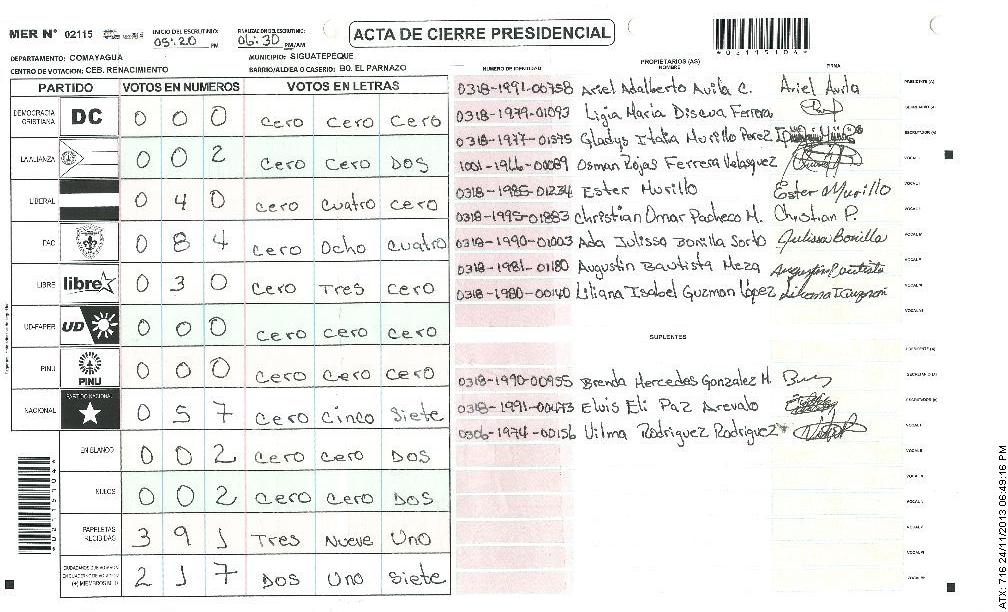 MER N° 02115
INICIO DEL ESCRUTINIO: 05:20 PM
FINALIZACION DEL ESCRUTINIO: 06:30 PM/AM
ACTA DE CIERRE PRESIDENCIAL
DEPARTAMENTO: COMAYAGUA
MUNICIPIO: SIGUATEPEQUE
CENTRO DE VOTACION: CEB. RENACIMIENTO
BARRIO/ALDEA O CASERIO: BO. EL PARNAZO
PARTIDO VOTOS EN NUMEROS VOTOS EN LETRAS
DEMOCRACIA CRISTIANA DC 0 0 0 Cero Cero Cero
LA ALIANZA 0 0 2 Cero Cero Dos
LIBERAL 0 4 0 Cero Cuatro Cero
PAC 0 8 4 Cero Ocho Cuatro
LIBRE libre 0 3 0 Cero Tres Cero
UD-FAPER UD 0 0 0 Cero Cero Cero
PINU PINU 0 0 0 Cero Cero Cero
NACIONAL PARTIDO NACIONAL 0 5 7 Cero Cinco Siete
EN BLANCO 0 0 2 Cero Cero Dos
NULOS 0 0 2 Cero Cero Dos
PAPELETAS RECIBIDAS 3 9 1 Tres Nueve Uno
2 1 7 Dos Uno Siete
NUMERO DE IDENTIDAD PROPIETARIOS (AS) NOMBRE FIRMA
0318-1991-00758 Ariel Adalberto Avila C. Ariel Avila PRESIDENTE (A)
0318-1979-01093 Ligia Maria Discua Ferrera SECRETARIO (A)
0318-1977-01575 Gladys Italia Murillo Perez ESCRUTADOR (A)
1001-1966-00089 Osman Rojas Ferrera Velasquez VOCAL I
0318-1985-01234 Ester Murillo Ester Murillo
0318-1995-01883 Christian Omar Pacheco M. Christian P.
0318-1990-01003 Ada Julissa Bonilla Sorto Julissa Bonilla
0318-1981-01180 Augustin Bautista Meza Augustin Bautista
0318-1980-00140 Liliana Isabel Guzman López Liliana I Guzman
SUPLENTES
0318-1990-00955 Brenda Mercedes Gonzalez M.
0318-1991-00473 Elvis Eli Paz Arevalo
0306-1974-00156 Vilma Rodriguez Rodriguez
ATX: 716 24/11/2013 06:49:16 PM